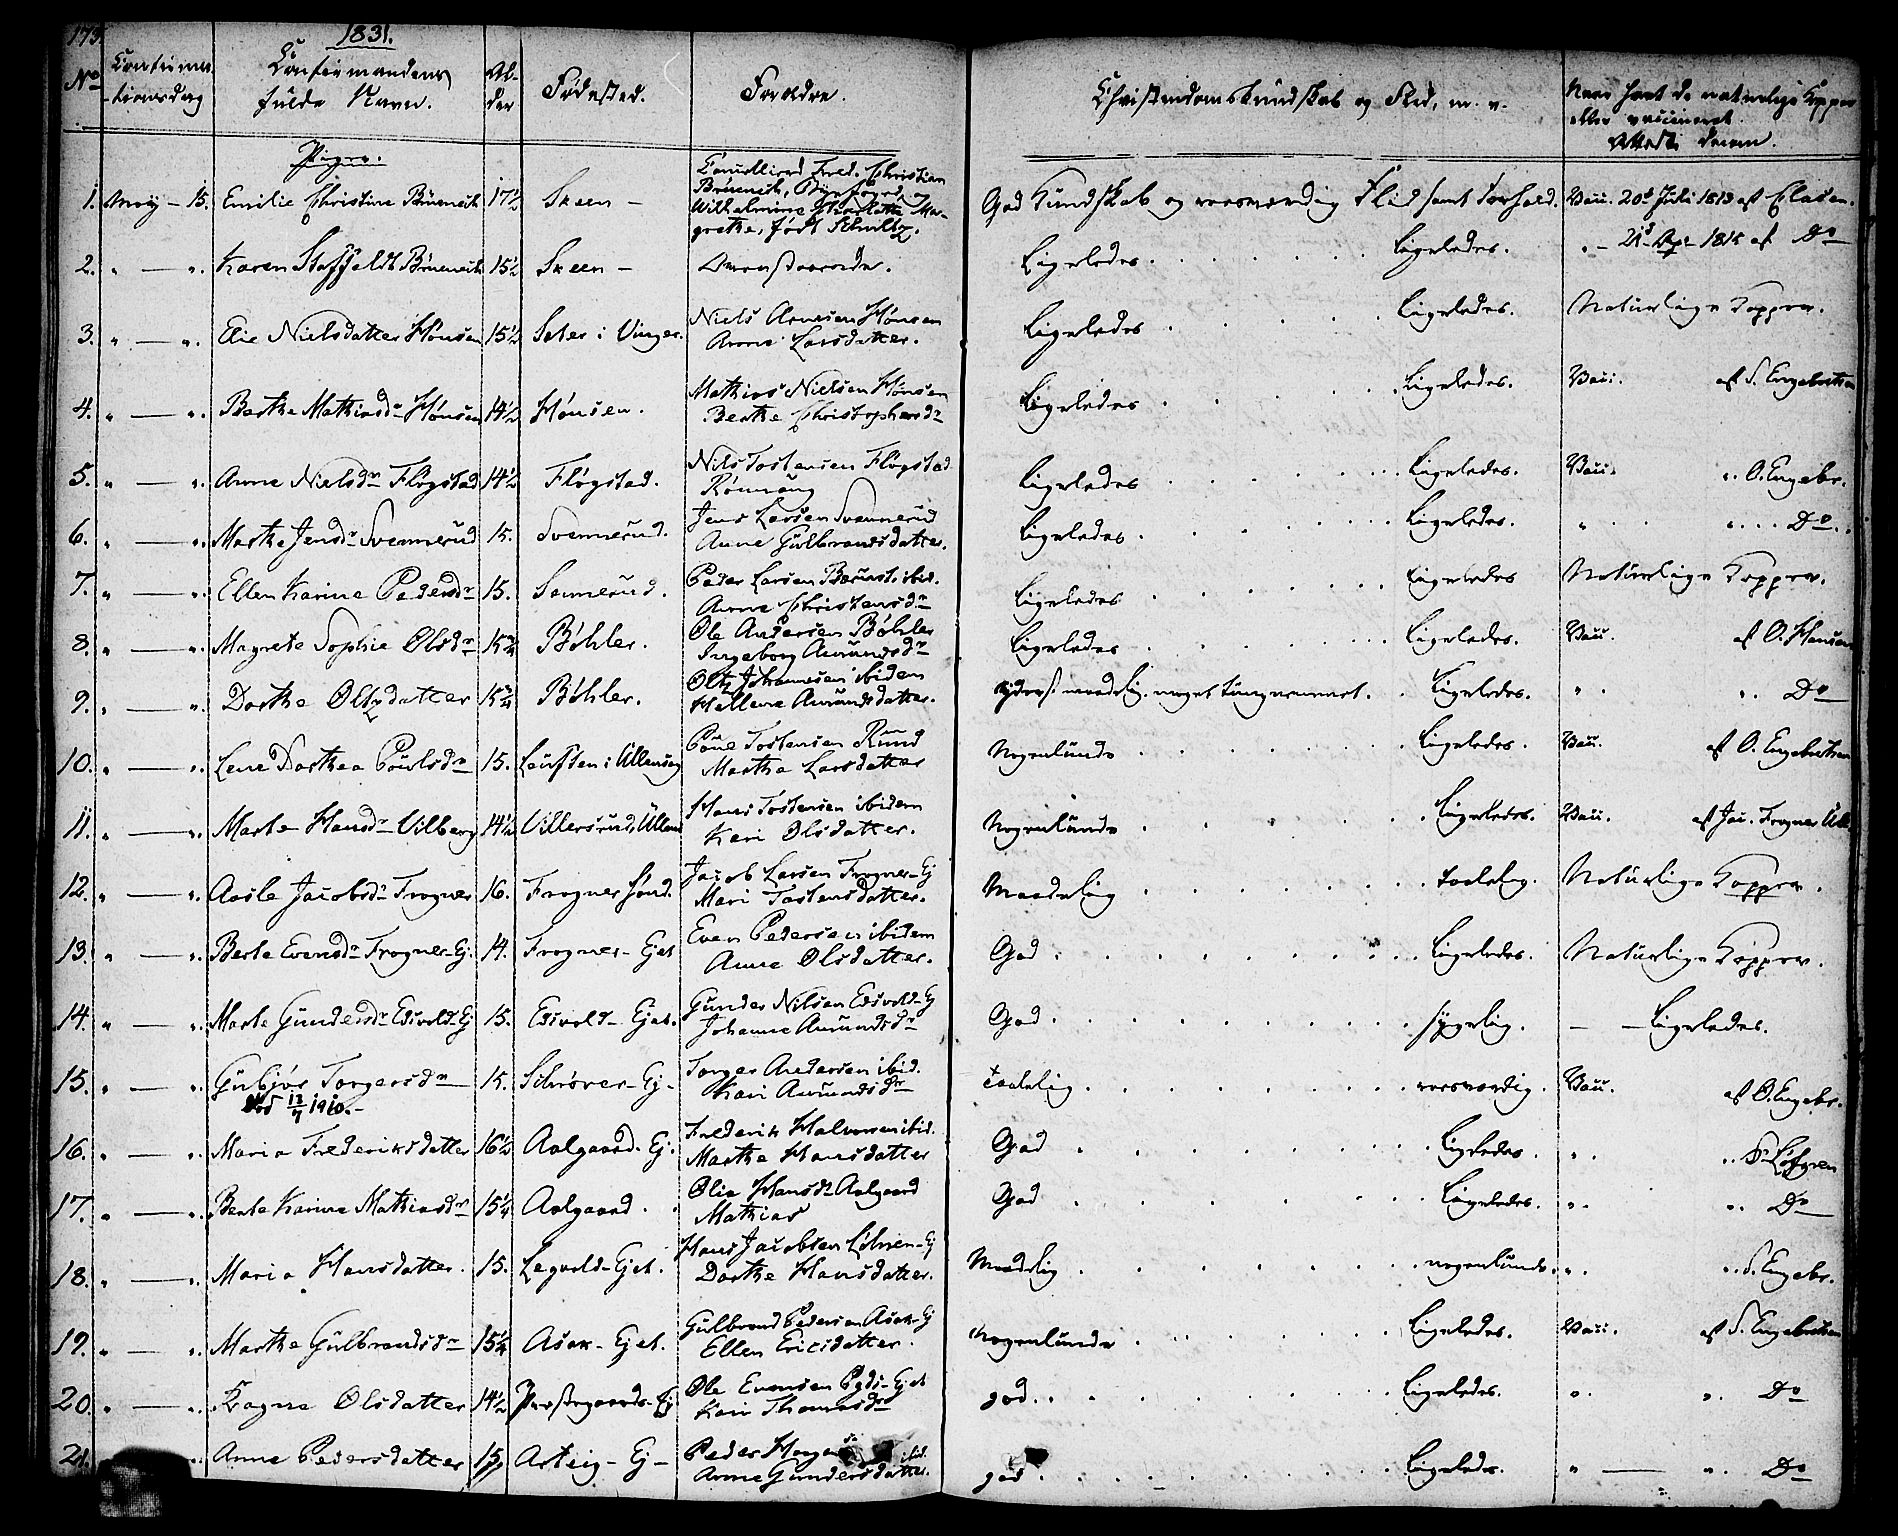 173.
1831.
No Confirma-tionsdag Confirmandens fulde Navn. Al-der Fødested. Forældre. Christendomskundskab og Flid, m. v. Naar havt de naturlige Kopper eller vaccineret Attest derom.
Piger.
1. May - 15. Emilie Christine Brüenech 17½ Skeen - Fred. Christian Brüenech, Byefoged, og Wilhelmine Charlotte Mar-grethe, født Schultz. God Kundskab og roesværdig Flid samt Forhold. Vacc. 20de Juli 1813 af Clasen.
2. " — ". Karen Staffeldt Brüenech 15½ Skeen - Ovenstaaende. Ligeledes. Ligeledes. " - 21de Apr 1815 af Do
3. " — ". Elie Nielsdatter Hønsen 15½ Seter i Vinger. Niels Arnesen Hønsen Anne Larsdatter. Ligeledes Ligeledes. Naturlige Kopper.
4. " — ". Berthe Mathiasdr Hønsen 14½ Hønsen. Mathias Nielsen Hønsen Berthe Christophersdr Ligeledes Ligeledes. Vacc. af S. Engebretsen
5. " — ". Anne Nielsdr Fløgstad 14½ Fløgstad. Nils Tostensen Fløgstad Ligeledes Ligeledes. Vacc. " O. Engebr.
6. " — ". Marthe Jensdr Svennerud 15. Svennerud. Jens Larsen Svennerud Anne Gulbrandsdatter. Ligeledes Ligeledes. " " Do
7. " — ". Ellen Karine Pedersdr 15. Peder Larsen ibid. Anne Christensdr Ligeledes Ligeledes Naturlige Kopper.
8. " — ". Magrete Sophie Olsdr 15¾ Bøhler. Ole Andersen Bøhler Ingeborg Amundsdr Ligeledes Ligeledes. Vacc. af O. Hansen
9. " — ". Dorthe Oltzdatter 15¾ Bøhler. Oltz Johannesen ibidem Hellene Amundsdatter. maadelig. noget tungnemmet. Ligeledes. " " Do
10. " — ". Lene Dorthea Poulsdr 15. i Ullensag Poul Tostensen Rund Marthe Larsdatter Nogenlunde Ligeledes. Vacc. af O. Engebretsen
11. " — ". Marte Hansdr Vilberg 14½ Villersrud, Ullens Hans Tostensen ibidem Kari Olsdatter. Nogenlunde Ligeledes. Vacc. af Jac. Frogner Ull.
12. " — ". Aasle Jacobsdr Frogner 16. Frogner Jacob Larsen Frogner-Ej Mari Tostensdatter. Maadelig taalelig. Naturlige Kopper.
13. " — ". Berte Evensdr Frogner-Ej. 14. Frogner-Ejet Even Pedersen ibidem Anne Olsdatter. God Ligeledes. Naturlige Kopper.
14. " — ". Marte Gundersdr Edsvold-Ej 15. Edsvold-Ejet. Gunder Nilsen Edsvold-Ej Johanne Amundsdr God sygelig. — — Ligeledes.
15. " — ". Gulbjør Torgersdr 15. Schrøver-Ej- Torger Andersen ibid. Kari Amundsdr taalelig roesværdig. Vacc. af O. Engebr.
Død 13/7 1910.-
16. " — ". Maria Frederiksdatter 16½ Aalgaard-Ej. Frederik Halvorsen ibid. Marthe Hansdatter God Ligeledes. " " Dr Løfgren
17. " — ". Berte Karine Mathiasdr 15¼ Aalgaard. Olia Hansdr Aalgaard Mathias God Ligeledes. " " Do
18. " — ". Maria Hansdatter. 15. Legvold-Ejet. Hans Jacobsen Dorthe Hansdatter. Maadelig nogenlunde. " " S. Engebr.
19. " — ". Marthe Gulbrandsdr 15¼ Asak-Ejet. Gulbrand Pedersen Asak-Ej Ellen Ericsdatter. Nogenlunde Ligeledes. Vacc. af S. Engebretsen
20. " — ". Olsdatter 14½ Præstegaards-Ej Ole Evensen Kari Thomasdr god. Ligeledes. " " Do
21. ". Anne Pedersdatter 15. Arteig-Ej- Peder ibid. Anne Gundersdatter. god. Ligeledes. " — " Do